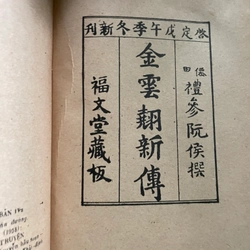 啓定戊午季冬新刊
僊田
禮參阮侯撰
金雲翹新傳
福文堂藏板
BẢN
(1918)